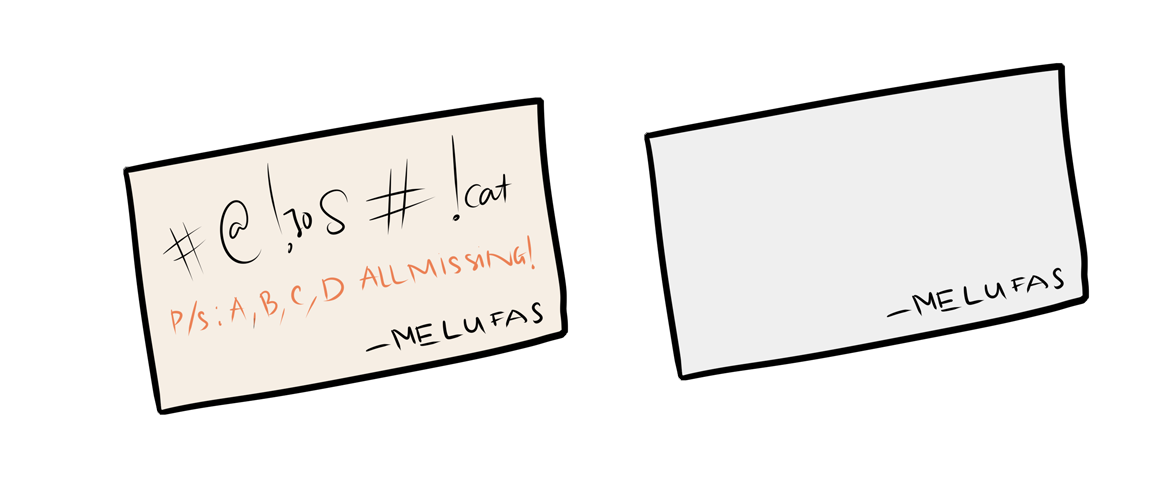 #@!,10S#!cat
P/S: A, B, C, D ALL MISSING!
—MELUFAS
—MELUFAS